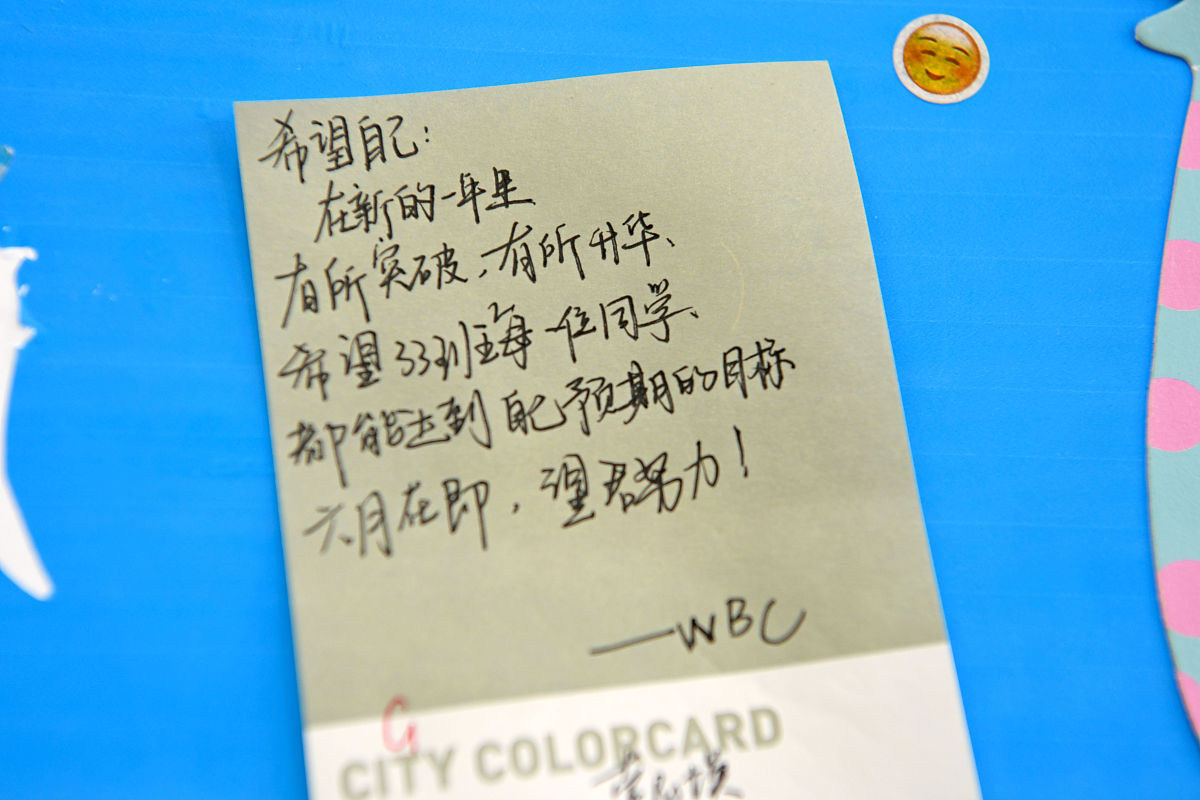 希望自己：
在新的一年里
有所突破、有所升华、
希望33班每一位同学、
都能达到自己预期的目标
六月在即，望君努力！
—WBC
G
CITY COLORCARD